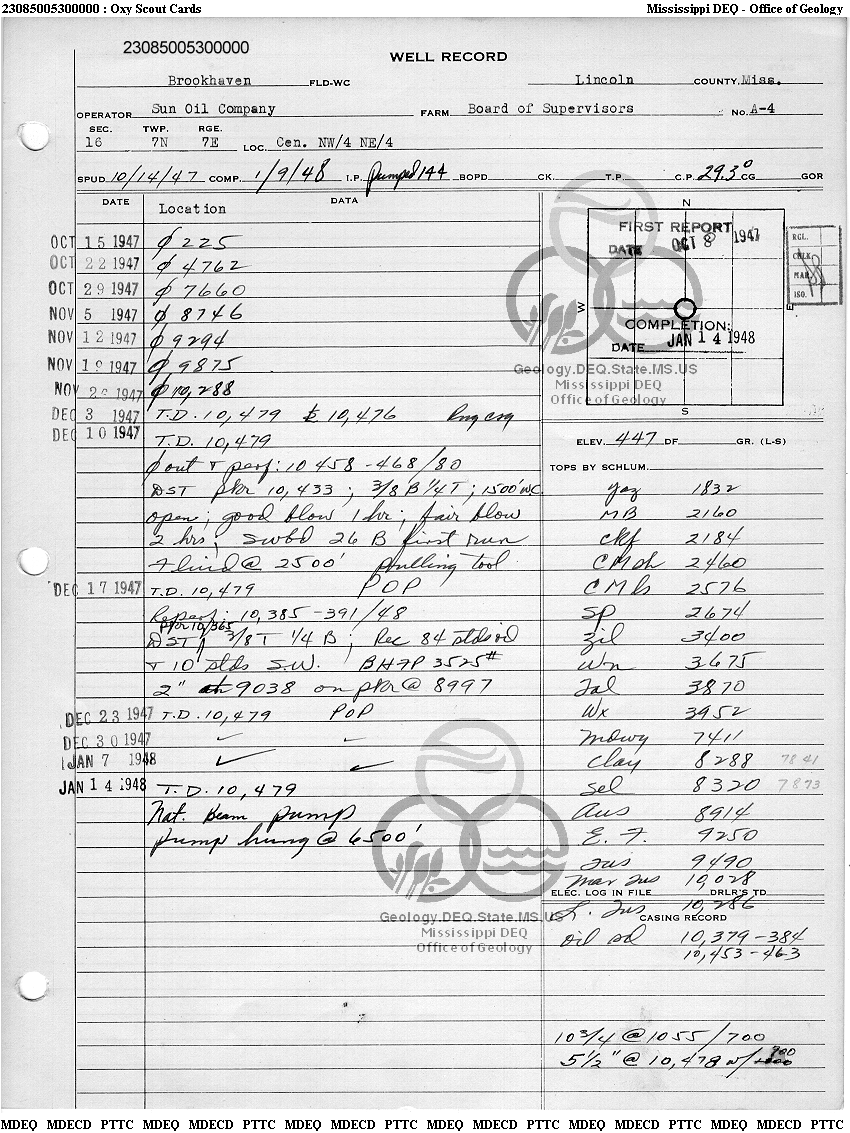 23085005300000 : Oxy Scout Cards Mississippi DEQ - Office of Geology
23085005300000
WELL RECORD
Brookhaven FLD-WC Lincoln COUNTY, Miss.
OPERATOR Sun Oil Company FARM Board of Supervisors No. A-4
SEC. TWP. RGE.
16 7N 7E LOC. Cen. NW/4 NE/4
SPUD 10/14/47 COMP. 1/9/48 I.P. Pumped 144 BOPD CK. T.P. C.P. 29.3° CG GOR
DATE DATA
Location
OCT 15 1947 ϕ 225
OCT 22 1947 ϕ 4762
OCT 29 1947 ϕ 7660
NOV 5 1947 ϕ 8746
NOV 12 1947 ϕ 9294
NOV 19 1947 ϕ 9875
NOV 26 1947 ϕ 10,288
DEC 3 1947 T.D. 10,479 10,476 Rng csg
DEC 10 1947 T.D. 10,479
ϕ out & perf: 10 458-468/80
DST pkr 10,433; 3/8 B 1/4 T; 1500' WC
open; good blow 1 hr; fair blow
2 hrs; Swbd 26 B first run
Fluid @ 2500' pulling tool
DEC 17 1947 T.D. 10,479 POP
Reperf: 10,385-391/48
pkr 10,365
DST 3/8 T 1/4 B; Rec 84 stds oil
& 10 stds S.W. BHFP 3525#
2" 9038 on pkr @ 8997
DEC 23 1947 T.D. 10,479 POP
DEC 30 1947 ✓ ✓
JAN 7 1948 ✓ ✓
JAN 14 1948 T.D. 10,479
Nat. Beam pump
pump hung @ 6500'
N
FIRST REPORT
DATE OCT 8 1947
W E
COMPLETION:
DATE JAN 14 1948
S
RGL.
CHLK.
MAR.
ISO.
Geology.DEQ.State.MS.US
Mississippi DEQ
Office of Geology
ELEV. 447 DF GR. (L-S)
TOPS BY SCHLUM.
Yaz 1832
MB 2160
ckf 2184
CMsh 2460
CMls 2576
Sp 2674
Zil 3400
Wn 3675
Sal 3870
Wx 3952
Mdwy 7411
Clay 8288 7841
Sel 8320 7873
Aus 8914
E. F. 9250
Tus 9490
Mar Tus 10,028
ELEC. LOG IN FILE DRLR'S TD
L. Tus 10,286
CASING RECORD
oil sd 10,379-384
10,453-463
10 3/4 @ 1055/700
5 1/2" @ 10,478 w/ 700
Geology.DEQ.State.MS.US
Mississippi DEQ
Office of Geology
MDEQ MDECD PTTC MDEQ MDECD PTTC MDEQ MDECD PTTC MDEQ MDECD PTTC MDEQ MDECD PTTC MDEQ MDECD PTTC